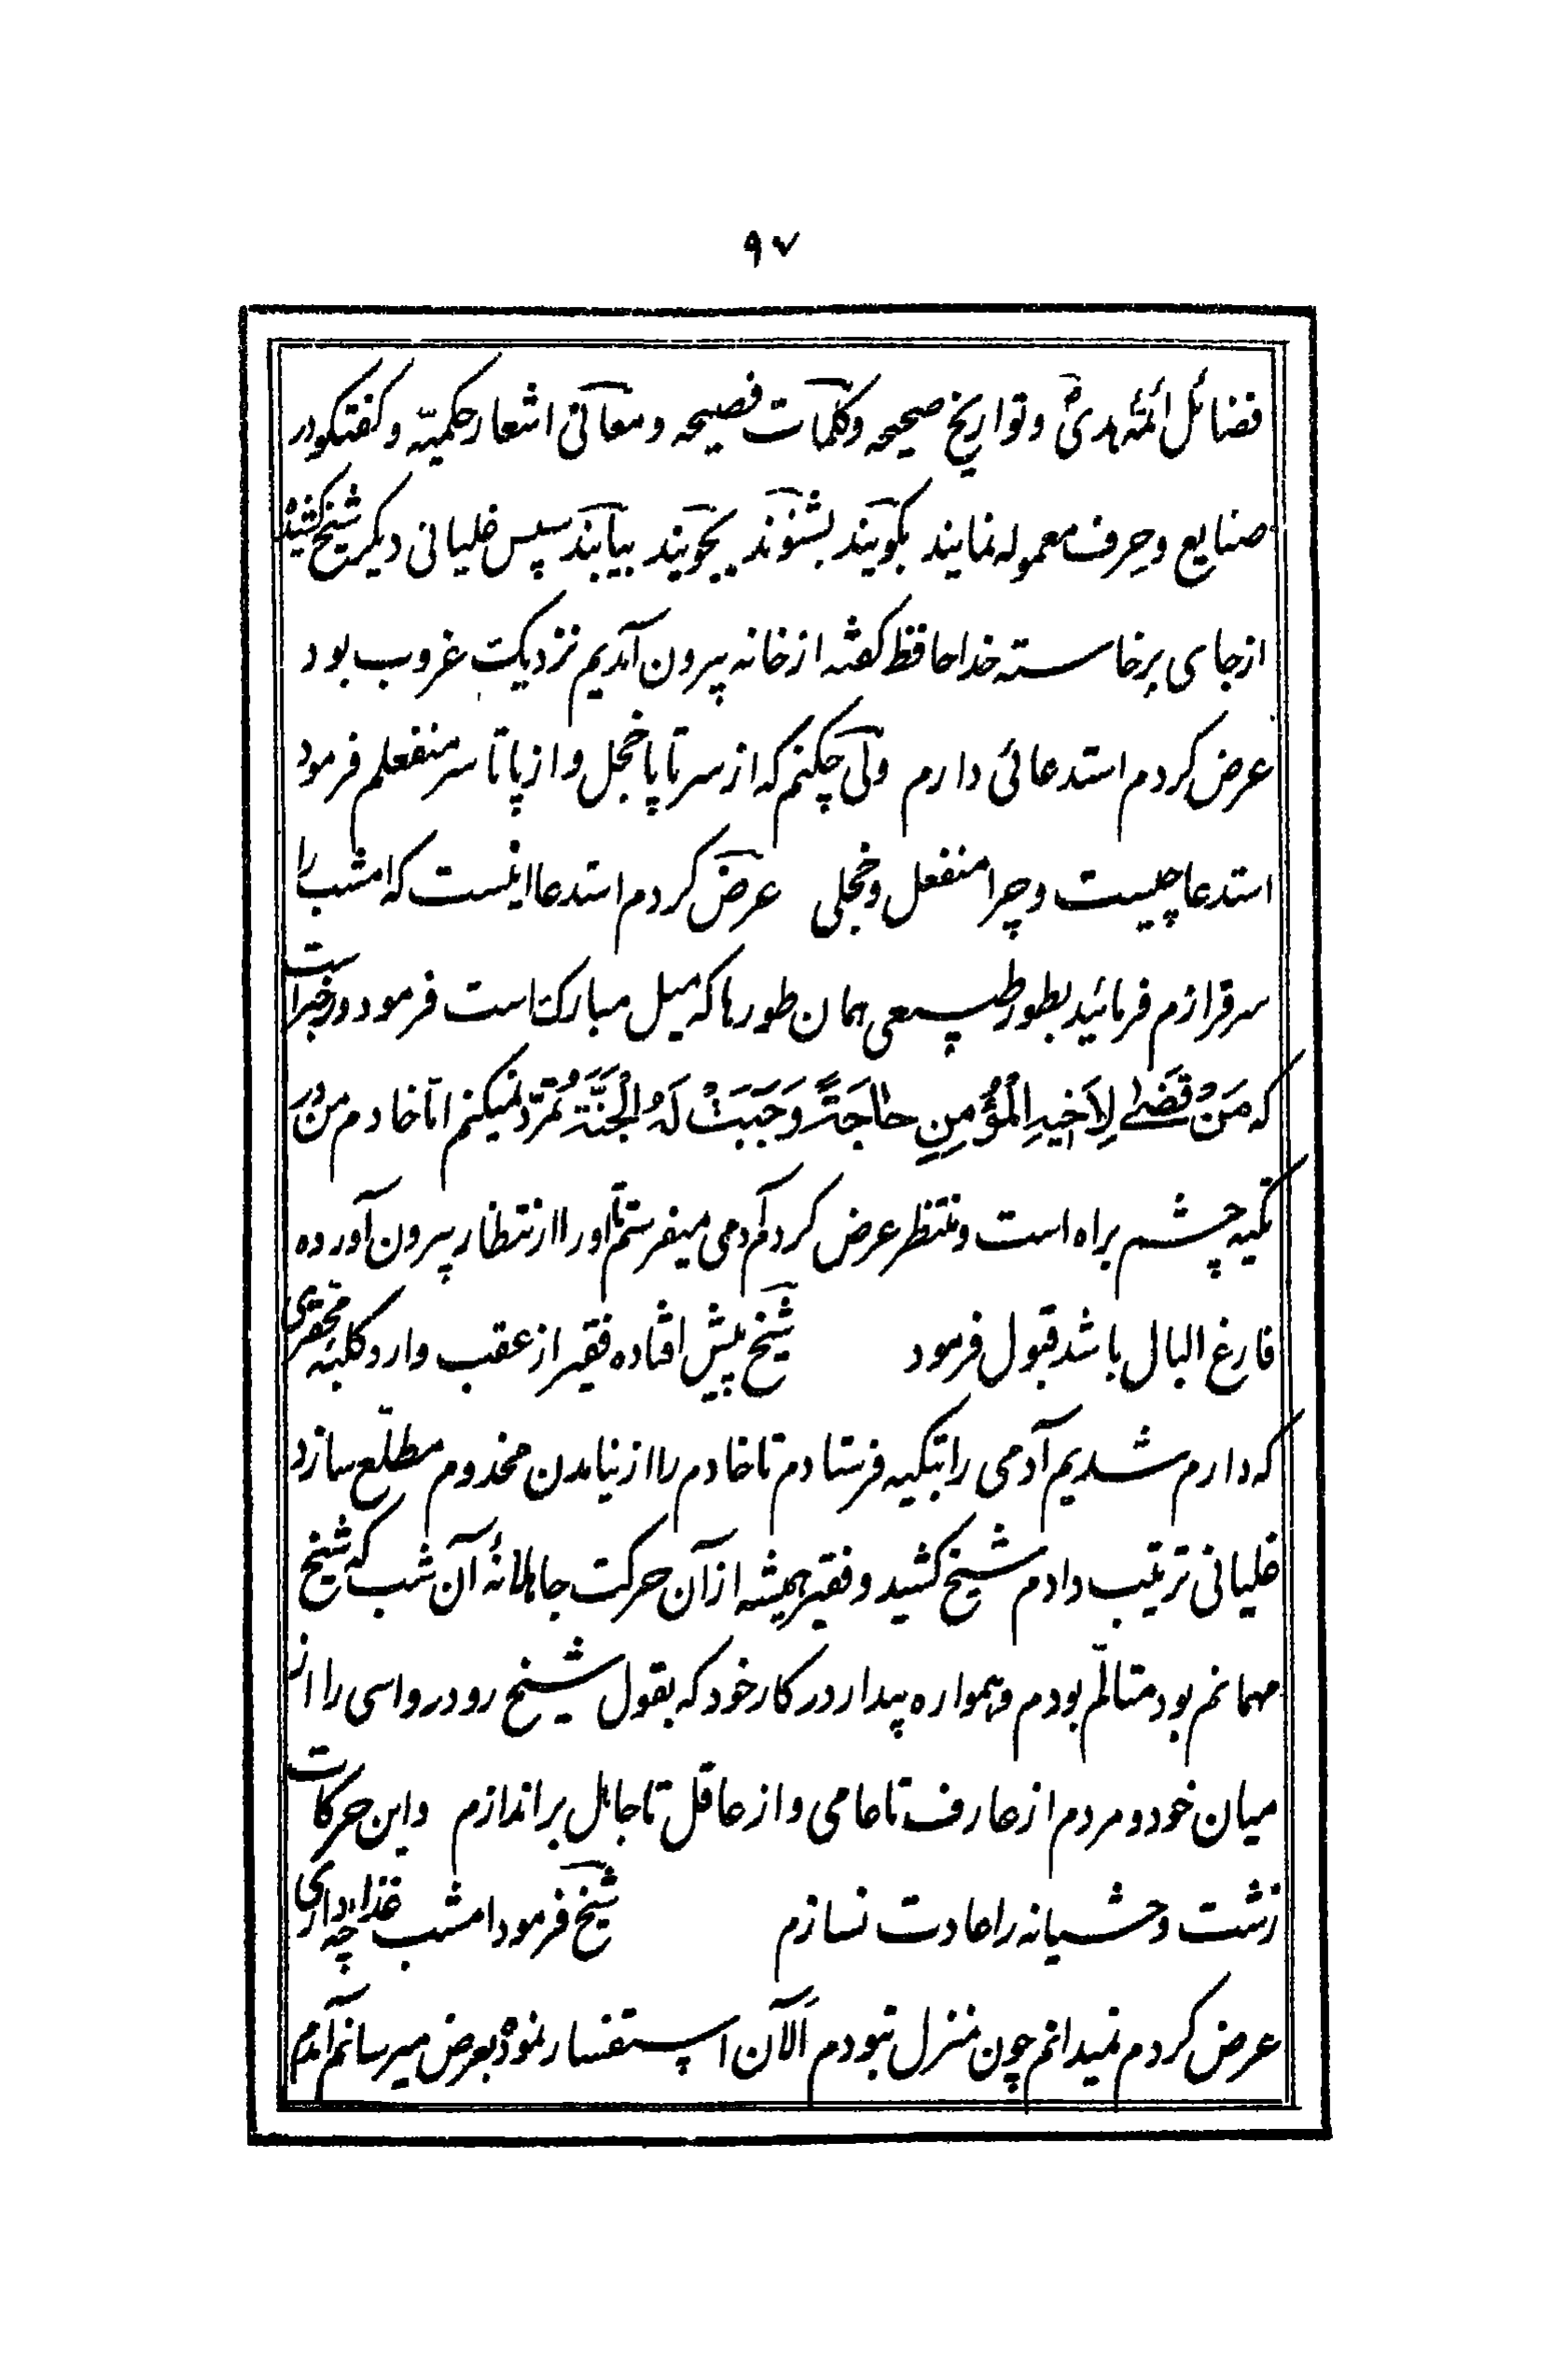 ۹۷
فضائل ائمّه هدیٰ و تواریخ صحیحه و کلمات فصیحه و معانی اشعار حکمیّه و کفتکو در
صنایع و حِرف معموله نمایند بکویند بشنوند بجویند بیابند سپس غلیانی دیکر شیخ کشید
از جای برخاسته خداحافظ کفته از خانه بیرون آمدیم نزدیک غروب بود
عرض کردم استدعائی دارم ولی چکنم که از سر تا پا خجل و از پا تا سر منفعلم فرمود
استدعا چیست و چرا منفعل و خجلی عرض کردم استدعا اینست که امشب را
سرفرازم فرمائید بطور طبیعی همان طورها که میل مبارکتاست فرمود در خبر است
که مَنْ قَضیٰ لِاَخیهِ الْمُؤْمِنِ حاجَةً وَجَبَتْ لَهُ الْجَنَّةَ تمرّد نمیکنم امّا خادم من در
تکیه چشم براه است و منتظر عرض کردم آدمی میفرستم تا او را از انتظار بیرون آورده
فارغ البال باشد قبول فرمود شیخ پیش افتاده فقیر از عقب وارد کلبهٔ محقری
که دارم شدیم آدمی را بتکیه فرستادم تا خادم را از نیامدن مخدوم مطلّع سازد
غلیانی ترتیب دادم شیخ کشید و فقیر همیشه از آن حرکت جاهلانهٔ آن شب که شیخ
مهمانم بود متالّم بودم و همواره بیدار در کار خود که بقول شیخ رودرواسی را از
میان خود و مردم از عارف تا عامی و از عاقل تا جاهل براندازم و این حرکات
زشت وحشیانه را عادت نسازم شیخ فرمود امشب غذا چه داری
عرض کردم نمیدانم چون منزل نبودم اَلآن استفسار نموده بعرض میرسانم آمدم